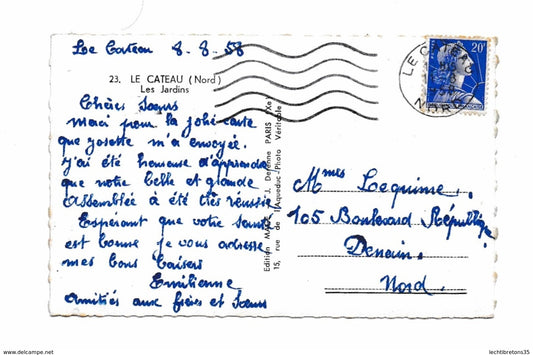 Le Cateau 8-8-58
23. LE CATEAU (Nord)
Les Jardins
Chères Sœurs
merci pour la jolie carte
que Josette m'a envoyée.
J'ai été heureuse d'apprendre
que notre belle et grande
Assemblée a été très réussie
Espérant que votre santé
est bonne je vous adresse
mes bons baisers
Emilienne
Amitiés aux frères et sœurs
Edition J. Derenne PARIS (Xe)
15, rue de l'Aqueduc - Photo Véritable
LE CATEAU
NORD
20F
Mmes Lequime.
105 Boulevard République
Denain.
Nord.
www.delcampe.net
lechtibretons35